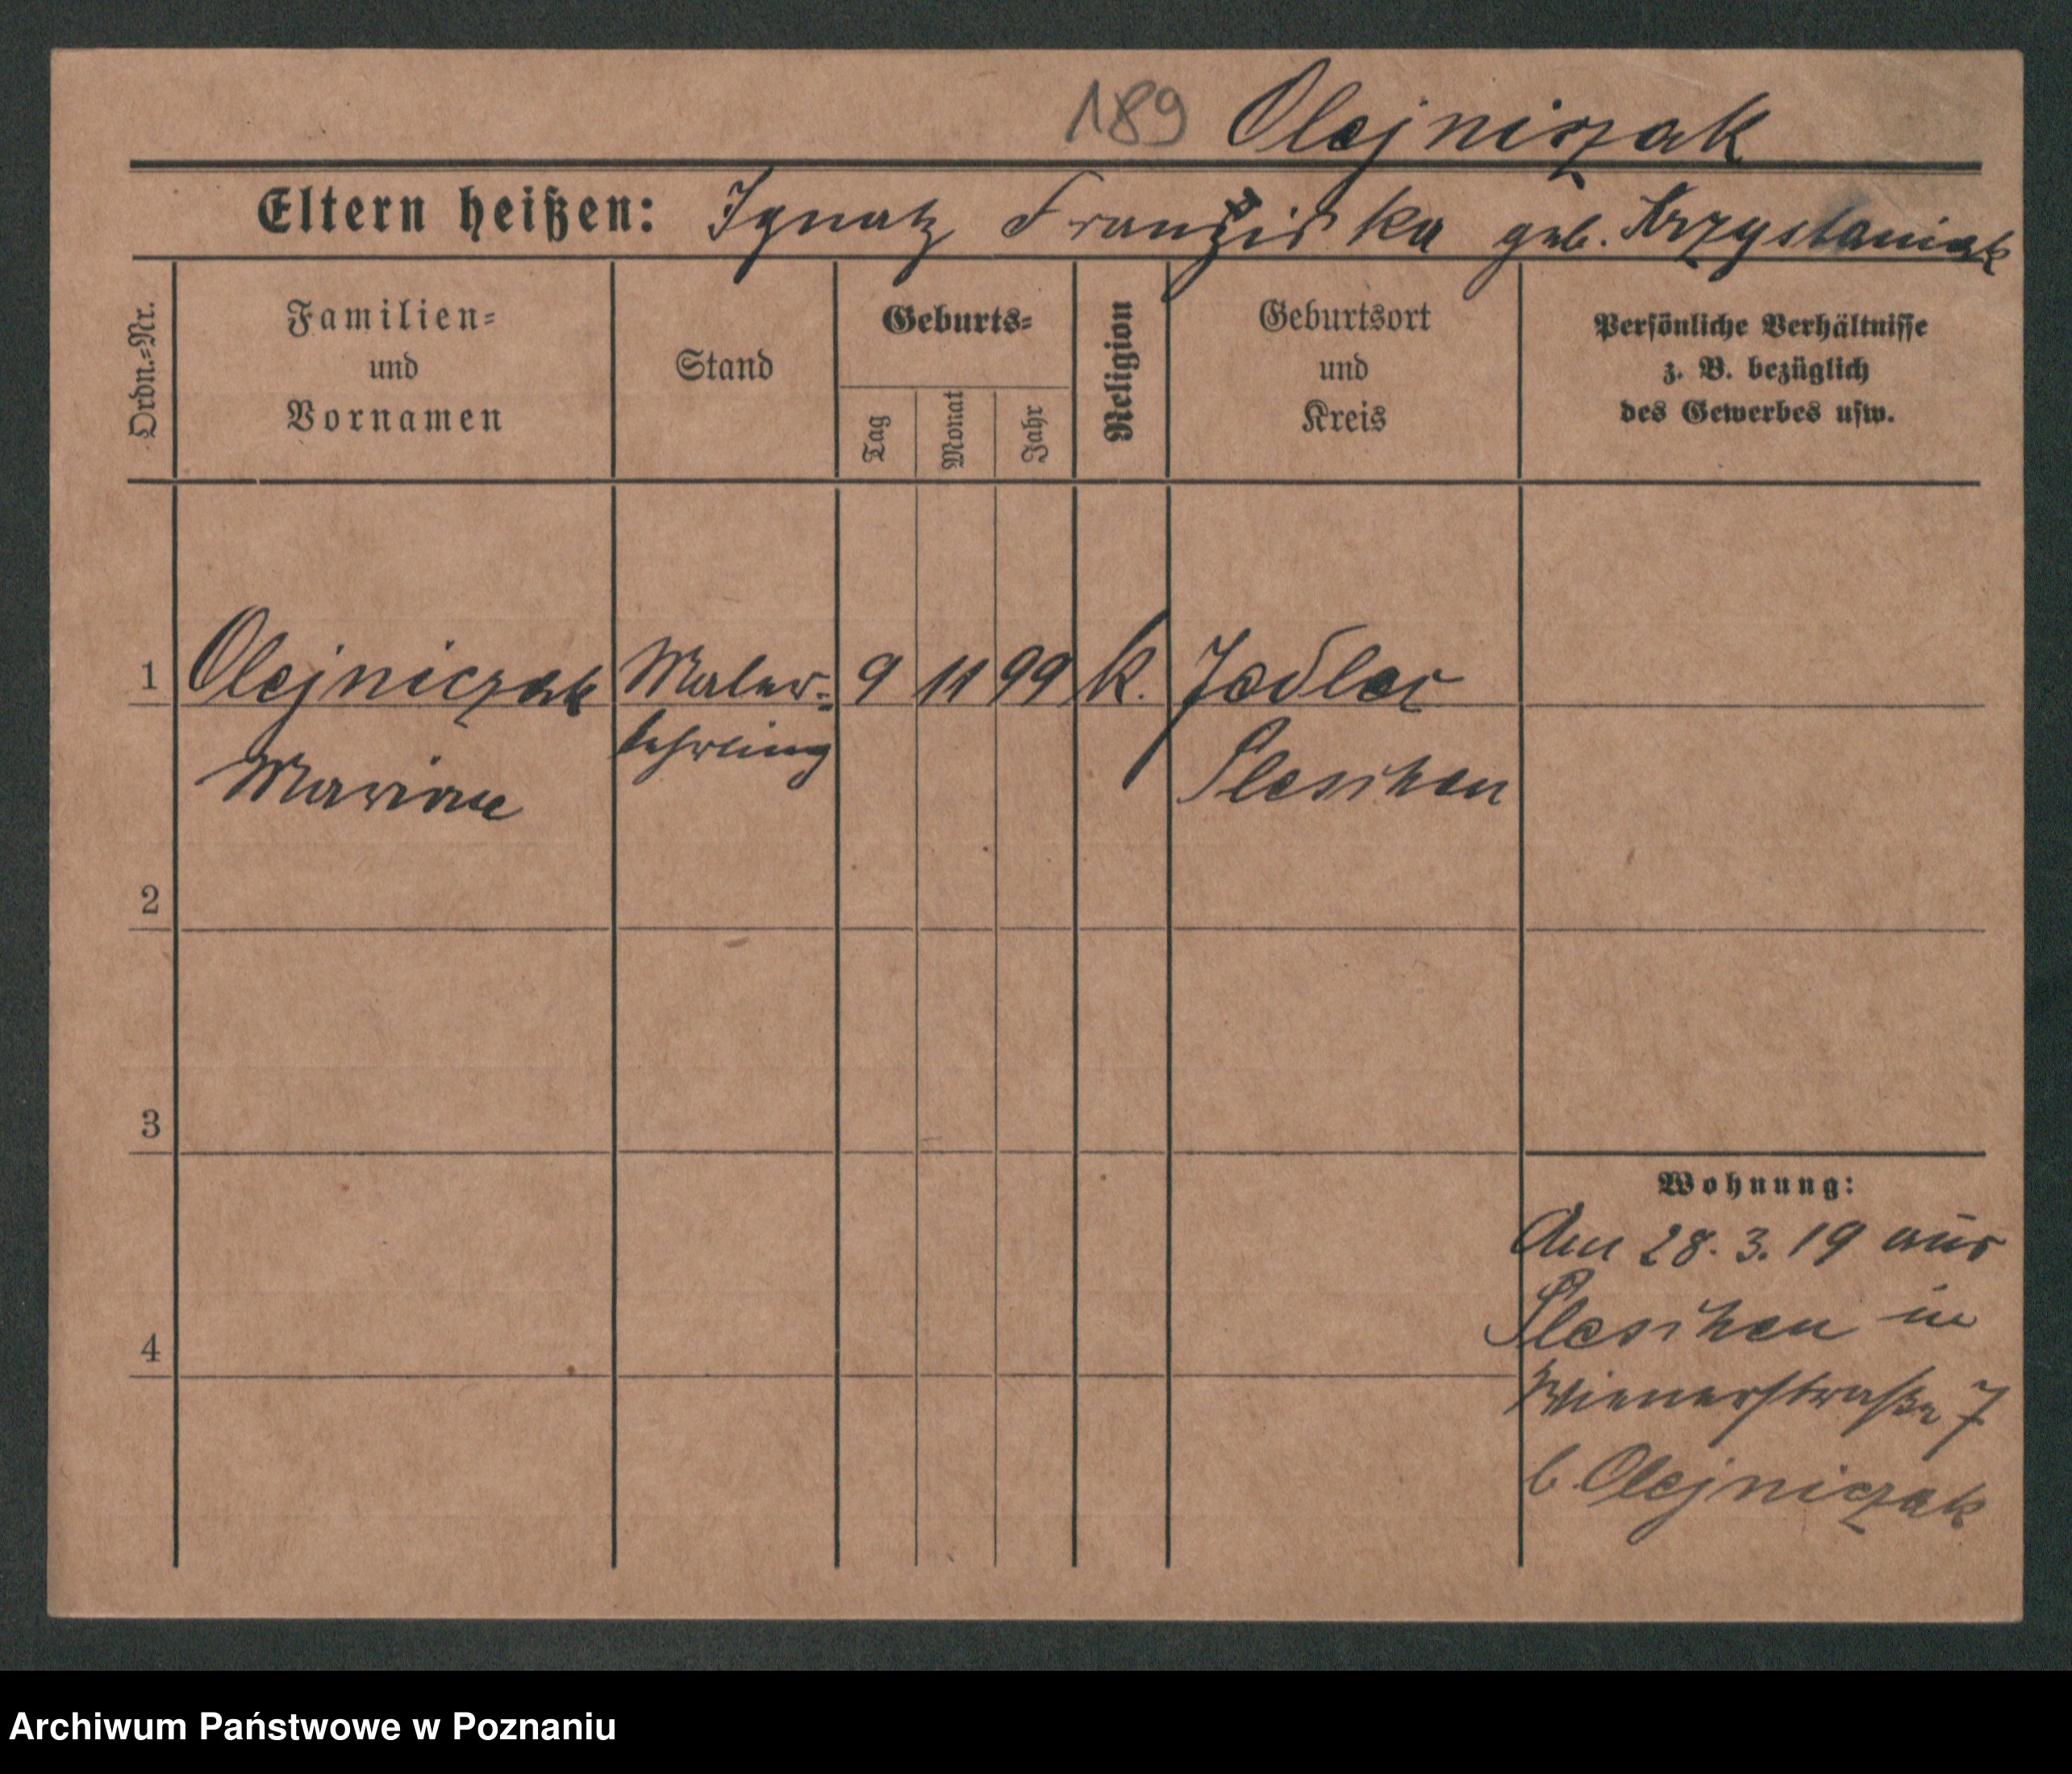 189 Olejniczak
Eltern heißen: Ignatz Franziska geb. Krzystaniak
Ordn.-Nr.
Familien-
und
Vornamen
Stand
Geburts-
Tag
Monat
Jahr
Religion
Geburtsort
und
Kreis
Persönliche Verhältnisse
z. B. bezüglich
des Gewerbes usw.
1 Olejniczak Maler- 9 11 99 k. Jedlec
lehrling
Pleschen
2
3
4
Wohnung:
Am 28. 3. 19 aus
Pleschen in
Wienerstraße 7
b. Olejniczak
Archiwum Państwowe w Poznaniu